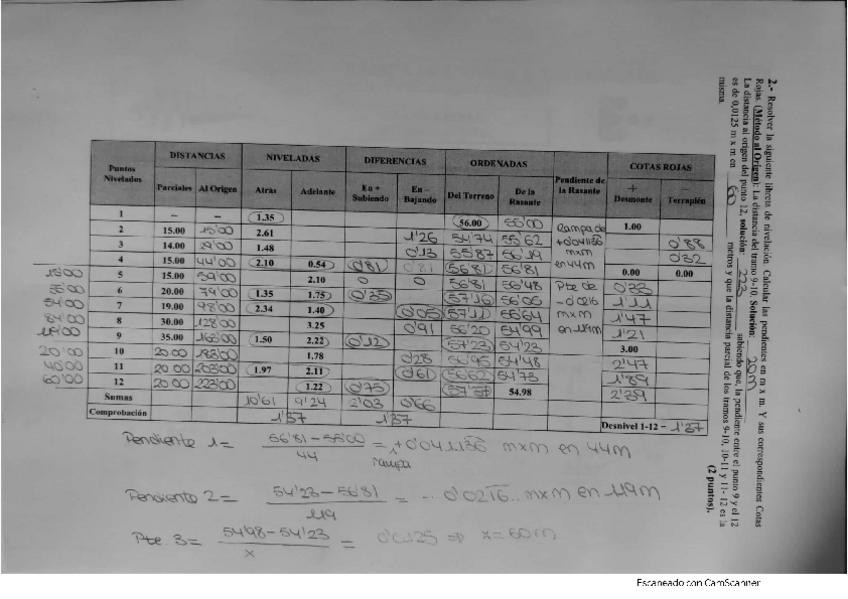 2.- Resolver la siguiente libreta de nivelación. Calcular las pendientes en m x m. Y sus correspondientes Cotas
Rojas. (Método al Origen): La distancia del tramo 9-10. Solución: 20m
La distancia al origen del punto 12, solución: 223 subiendo que, la pendiente entre el punto 9 y el 12
es de 0,0125 m x m en 60 metros y que la distancia parcial de los tramos 9-10, 10-11 y 11- 12 es la
misma. (2 puntos).
Puntos Nivelados DISTANCIAS NIVELADAS DIFERENCIAS ORDENADAS Pendiente de la Rasante COTAS ROJAS
Parciales Al Origen Atras Adelante En + Subiendo En – Bajando Del Terreno De la Rasante + Desmonte – Terraplén
1 – – 1.35 56.00 55'00 1.00
2 15.00 15'00 2.61 1'26 54'74 55'62 0'88
3 14.00 29'00 1.48 0'13 55'87 56'19 0'32
4 15.00 44'00 2.10 0.54 0'81 0'81 56'81 56'81 0.00 0.00
Rampa de +0'041136 mxm en 44m
15'00 5 15.00 59'00 2.10 0 0 56'81 56'48 0'33
35'00 6 20.00 79'00 1.35 1.75 0'35 57'16 56'05 1'11
54'00 7 19.00 98'00 2.34 1.40 0'05 57'11 55'64 1'47
84'00 8 30.00 128'00 3.25 0'91 56'20 54'99 1'21
119'00 9 35.00 163'00 1.50 2.22 0'12 57'23 54'23 3.00
Pte de -0'0216 mxm en 119m
20'00 10 20 00 183'00 1.78 0'28 56'95 54'48 2'47
40'00 11 20 00 203'00 1.97 2.11 0'61 56'62 54'73 1'89
60'00 12 20 00 223'00 1.22 0'75 57'37 54.98 2'39
Sumas 10'61 9'24 2'03 0'66
Comprobación 1'37 1'37 Desnivel 1-12 – 1'37
Pendiente 1= 56'81-55'00 / 44 = +0'041136 mxm en 44m
rampa
Pendiente 2= 54'23-56'81 / 119 = -0'0216.. mxm en 119m
Pte 3= 54'98-54'23 / x = 0'0125 => x=60m
Escaneado con CamScanner